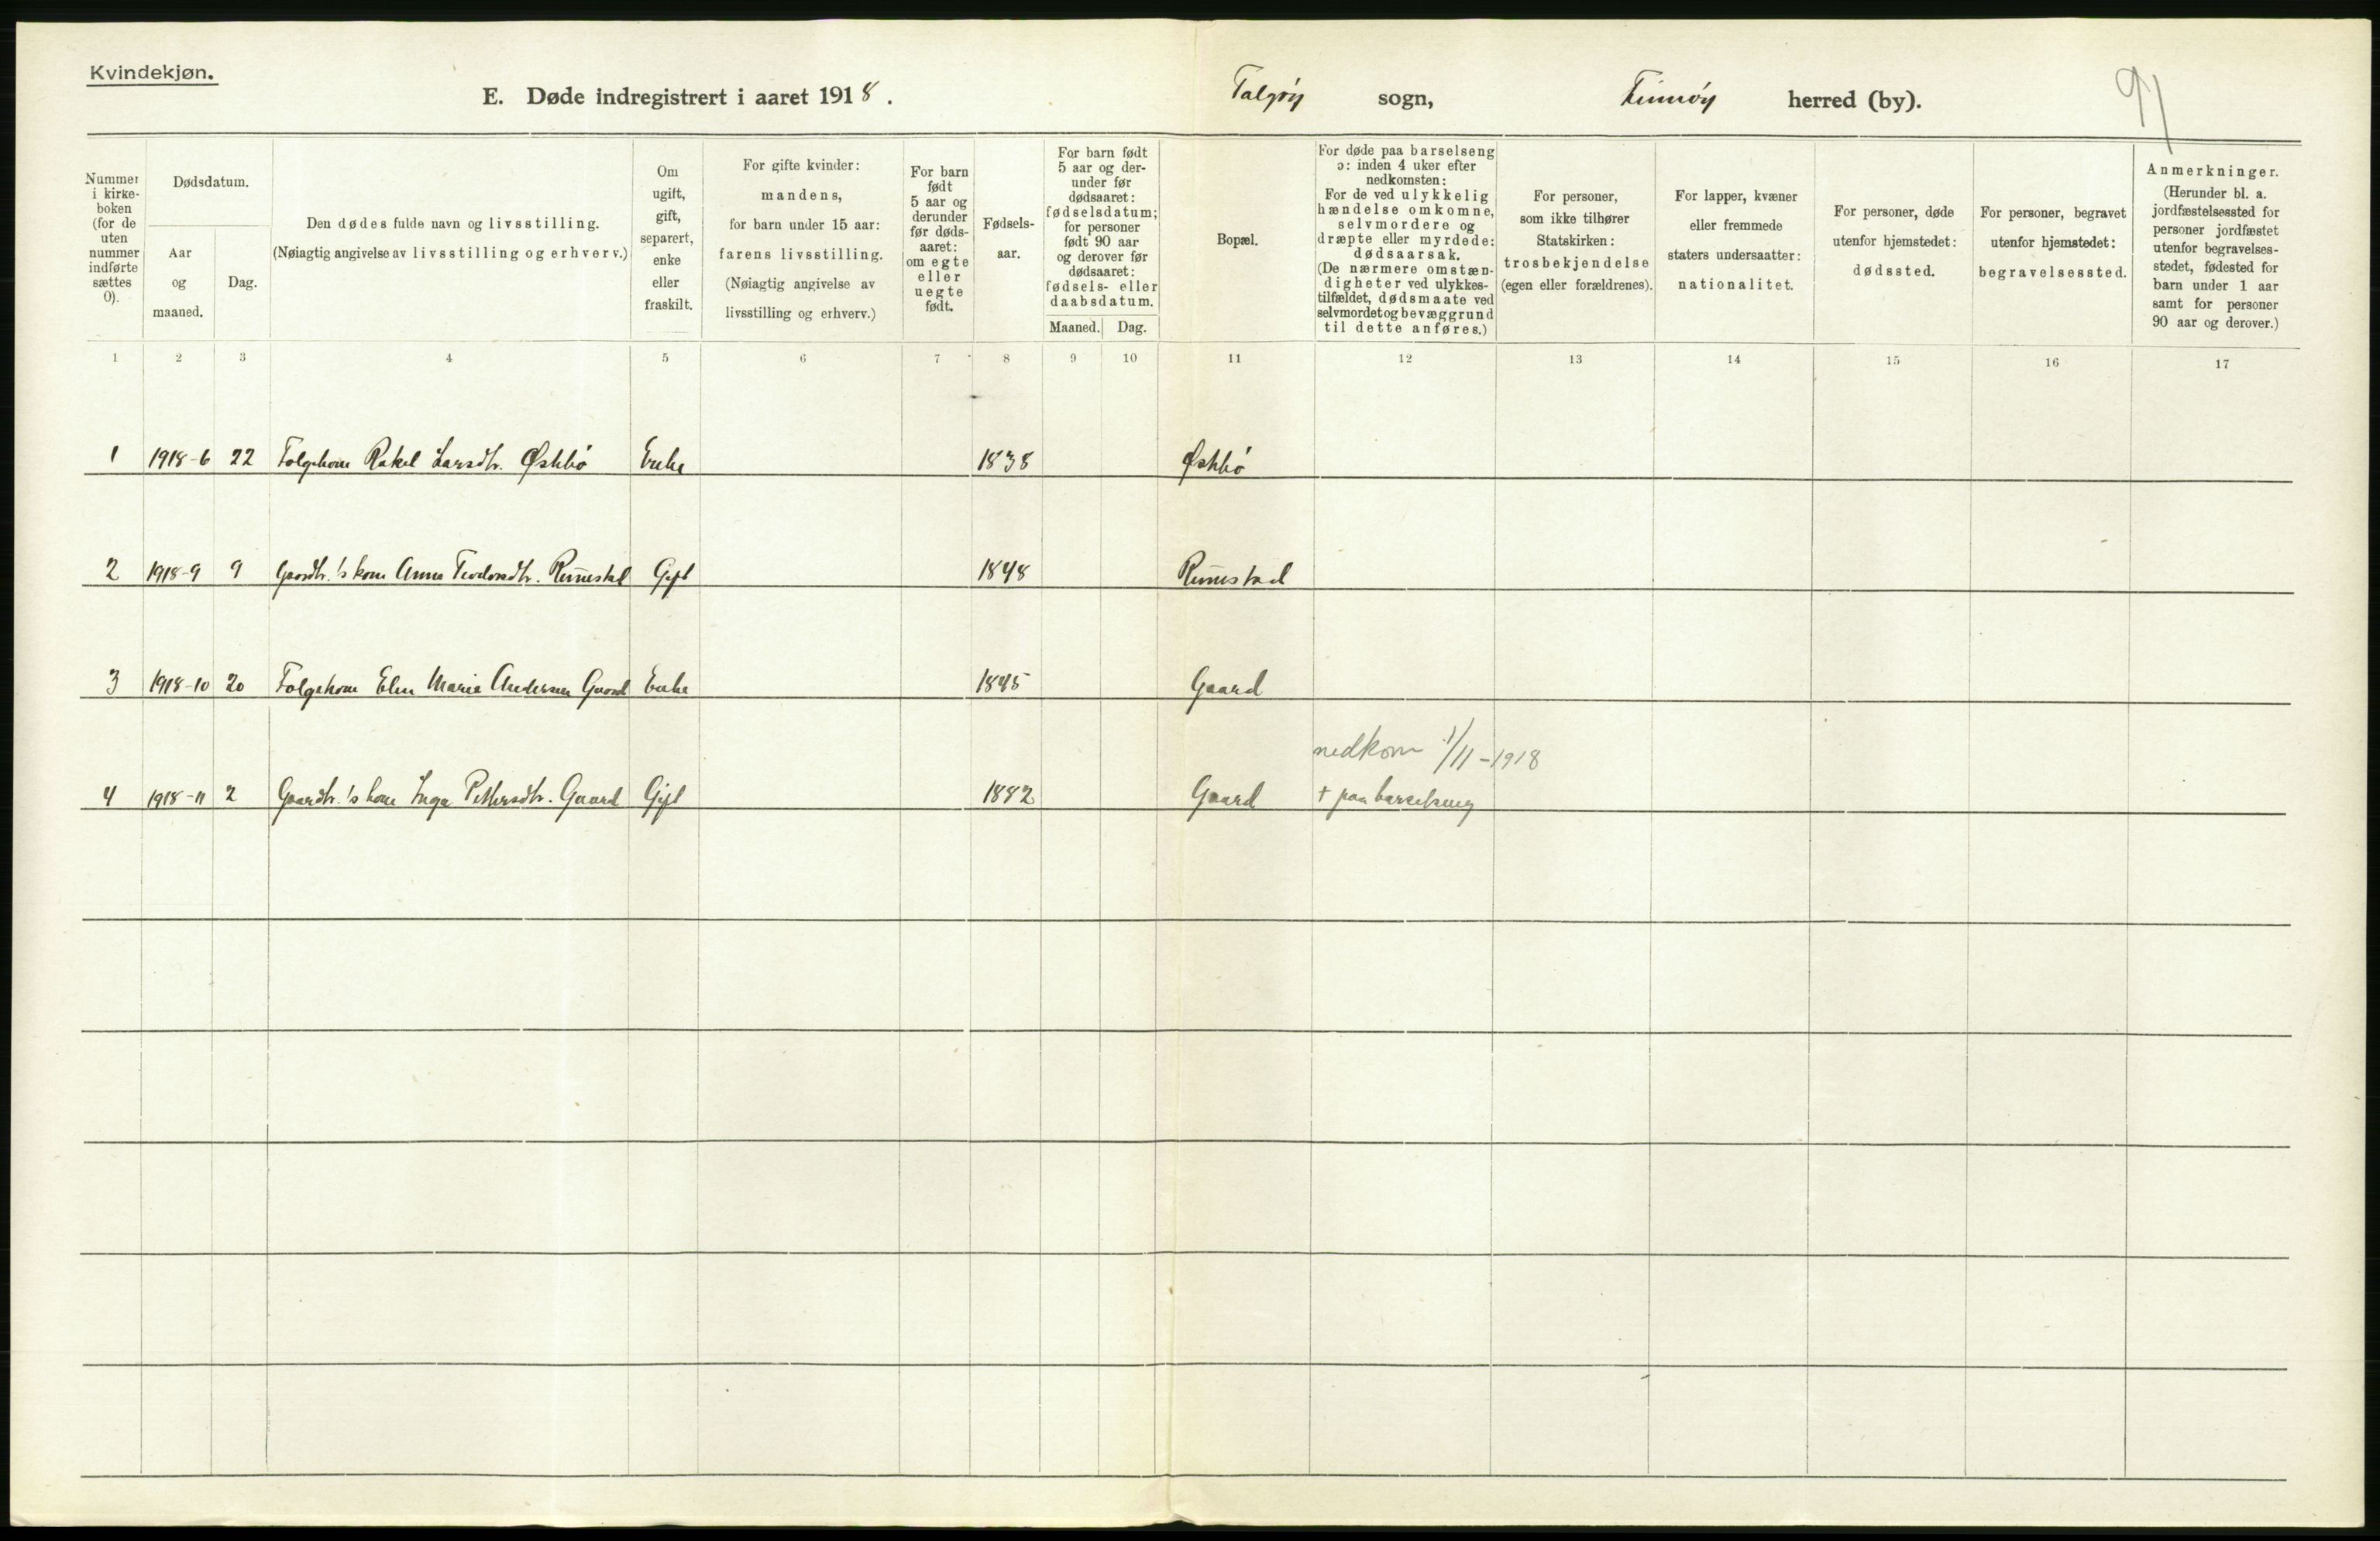 Kvindekjøn.
E. Døde indregistrert i aaret 1918.
Talgøy sogn, Finnøy herred (by).
91
Nummer i kirke-boken (for de uten nummer indførte sættes 0).
Dødsdatum.
Aar og maaned.
Dag.
Den dødes fulde navn og livsstilling.
(Nøiagtig angivelse av livsstilling og erhverv.)
Om ugift, gift, separert, enke eller fraskilt.
For gifte kvinder: mandens, for barn under 15 aar: farens livsstilling.
(Nøiagtig angivelse av livsstilling og erhverv.)
For barn født 5 aar og derunder før døds-aaret: om egte eller uegte født.
Fødsels-aar.
For barn født 5 aar og der-under før dødsaaret: fødselsdatum; for personer født 90 aar og derover før dødsaaret: fødsels- eller daabsdatum.
Maaned. Dag.
Bopæl.
For døde paa barselseng ɔ: inden 4 uker efter nedkomsten:
For de ved ulykkelig hændelse omkomne, selvmordere og dræpte eller myrdede: dødsaarsak.
(De nærmere omstæn-digheter ved ulykkes-tilfældet, dødsmaate ved selvmordet og bevæggrund til dette anføres.)
For personer, som ikke tilhører Statskirken: trosbekjendelse (egen eller forældrenes).
For lapper, kvæner eller fremmede staters undersaatter: nationalitet.
For personer, døde utenfor hjemstedet: dødssted.
For personer, begravet utenfor hjemstedet: begravelsessted.
Anmerkninger.
(Herunder bl. a. jordfæstelsessted for personer jordfæstet utenfor begravelses-stedet, fødested for barn under 1 aar samt for personer 90 aar og derover.)
1 2 3 4 5 6 7 8 9 10 11 12 13 14 15 16 17
1 1918-6 22 Folgekone Rakel Larsdtr. Østbø Enke 1838 Østbø
2 1918-9 9 Gaardbr.'s kone Anna Teodorsdtr. Rimestad Gift 1848 Rimestad
3 1918-10 20 Folgekone Elen Marie Andersen Gaard Enke 1845 Gaard
nedkom 1/11-1918
4 1918-11 2 Gaardbr.'s kone Inga Pettersdtr. Gaard Gift 1882 Gaard + paa barselseng